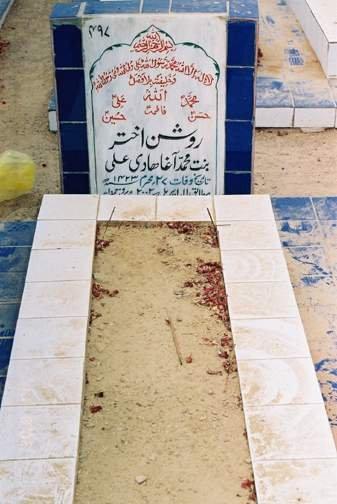 ۴۹۷
بسم اللہ الرحمن الرحیم
لا الہ الا اللہ محمد رسول اللہ علی ولی اللہ وصی رسول اللہ
وخلیفتہ بلا فصل
محمد اللہ علی
حسن فاطمہ حسین
روشن اختر
بنت محمد آغا ھادی علی
تاریخ وفات ۲۷ محرم ۱۴۲۳ھ
مطابق ۱۱ اپریل ۲۰۰۲ بروز جمعرات